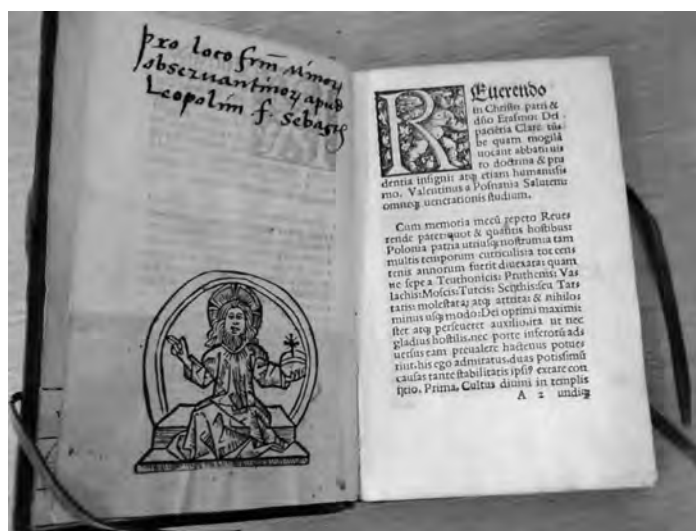 pro loco frm̄ Minoꝝ
obseruantinoꝝ apud
Leopolim f. Sebasti
REuerendo
in Christo patri &
dño Erasmo: Dei
paciētia Clare tūbe
quam mogilā
uocant abbati: uiro
doctrina & prudentia
insigni: atq; etiam humanissimo.
Valentinus a Posnania Salutem:
omneq; uenerationis studium.
Cum memoria mecū repeto Reuerende
pater: quot & quantis hostibus:
Polonia patria utriusq; nostrum: a tam
multis temporum curriculis: a tot centenis
annorum fuerit diuexata: quam
ue sepe a Teuthonicis: Pruthenis: Valachis:
Moscis: Turcis: Scythis: seu Tartaris:
molestata: atq; attrita: & nihilominus
usq; modo: Dei optimi maximi
ster atq; perseueret auxilio. ita ut nec
gladius hostilis. nec porte inferorū aduersus
eam preualere hactenus potuerint.
his ego admiratus. duas potissimū
causas tante stabilitatis ipsi⁹ extare conijcio.
Prima. Cultus diuini in templis
A 2 undiq;